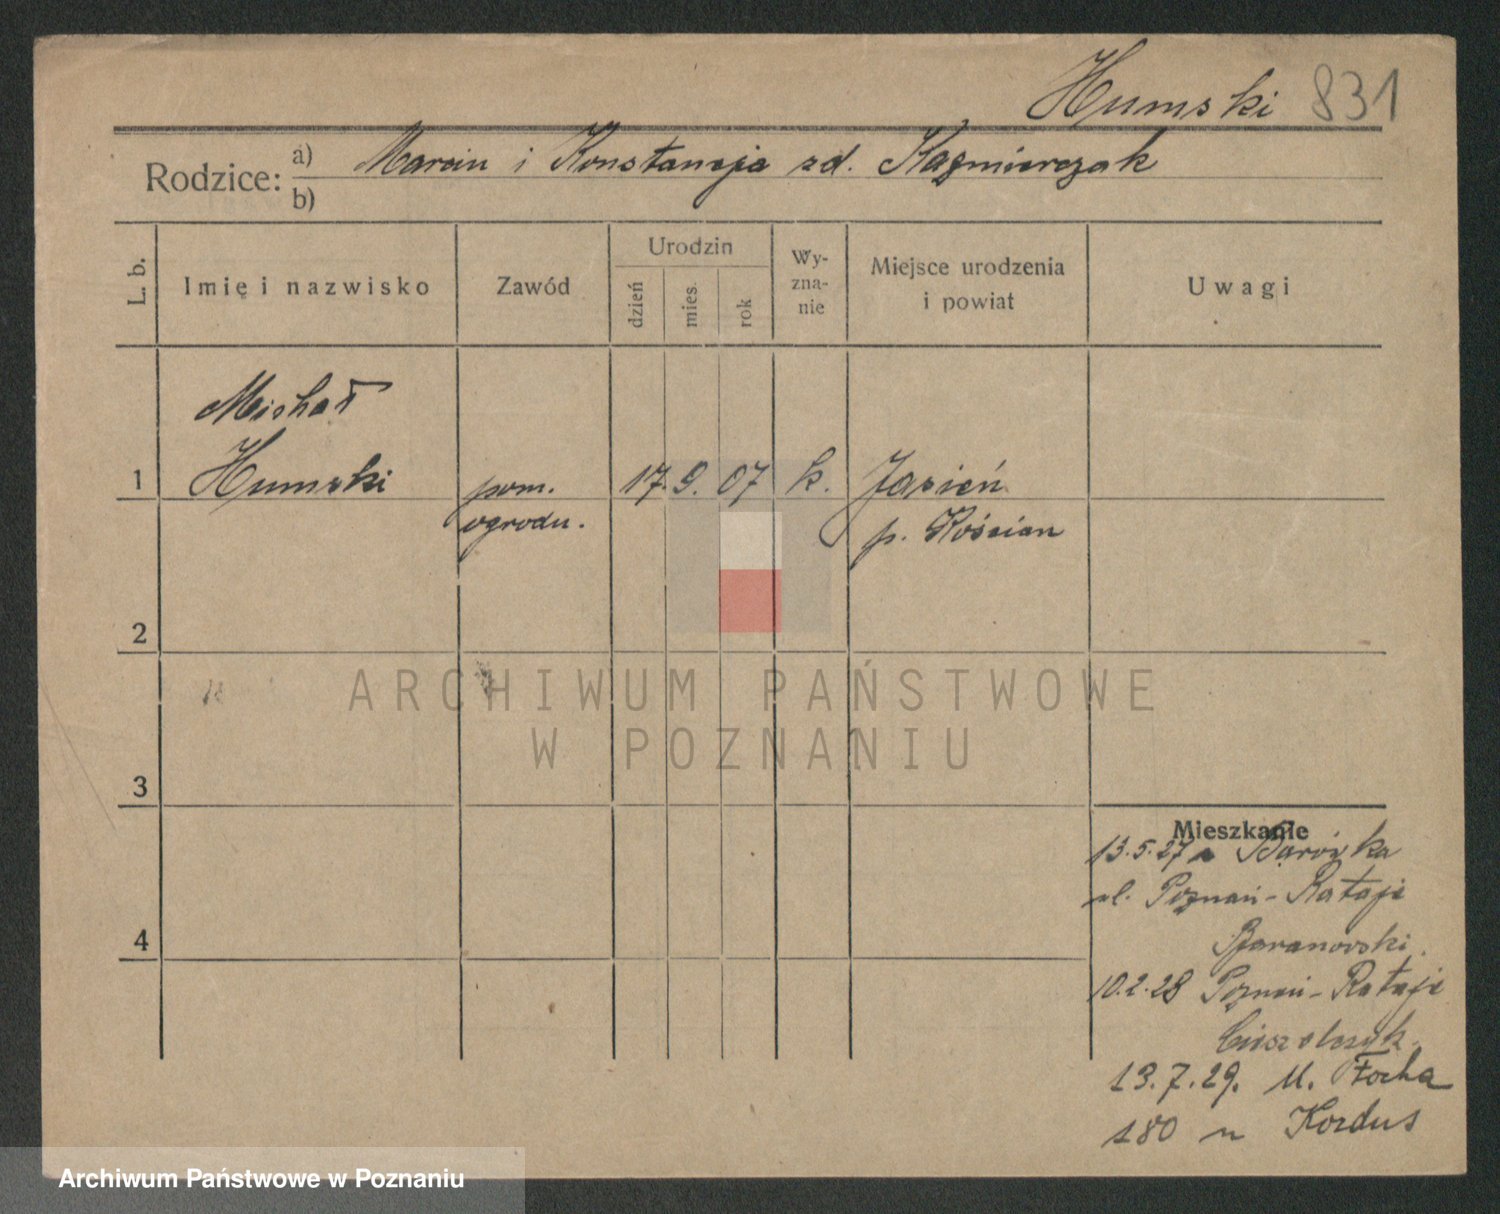 Humski 831
Rodzice: a) Marcin i Konstancja zd. Kaźmierczak
b)
L. b.
Imię i nazwisko
Zawód
Urodzin
dzień
mies.
rok
Wy-
zna-
nie
Miejsce urodzenia
i powiat
Uwagi
Michał
1 Humski pom. 17. 9. 07 k. Jasień
ogrodn. p. Kościan
2
ARCHIWUM PAŃSTWOWE
W POZNANIU
3
Mieszkanie
13.5.27 z Borówka
ul. Poznań - Rataje
4 Baranowski
10.2.28 Poznań - Rataje
13.7.29. ul. Focha
180 u Kordus
Archiwum Państwowe w Poznaniu